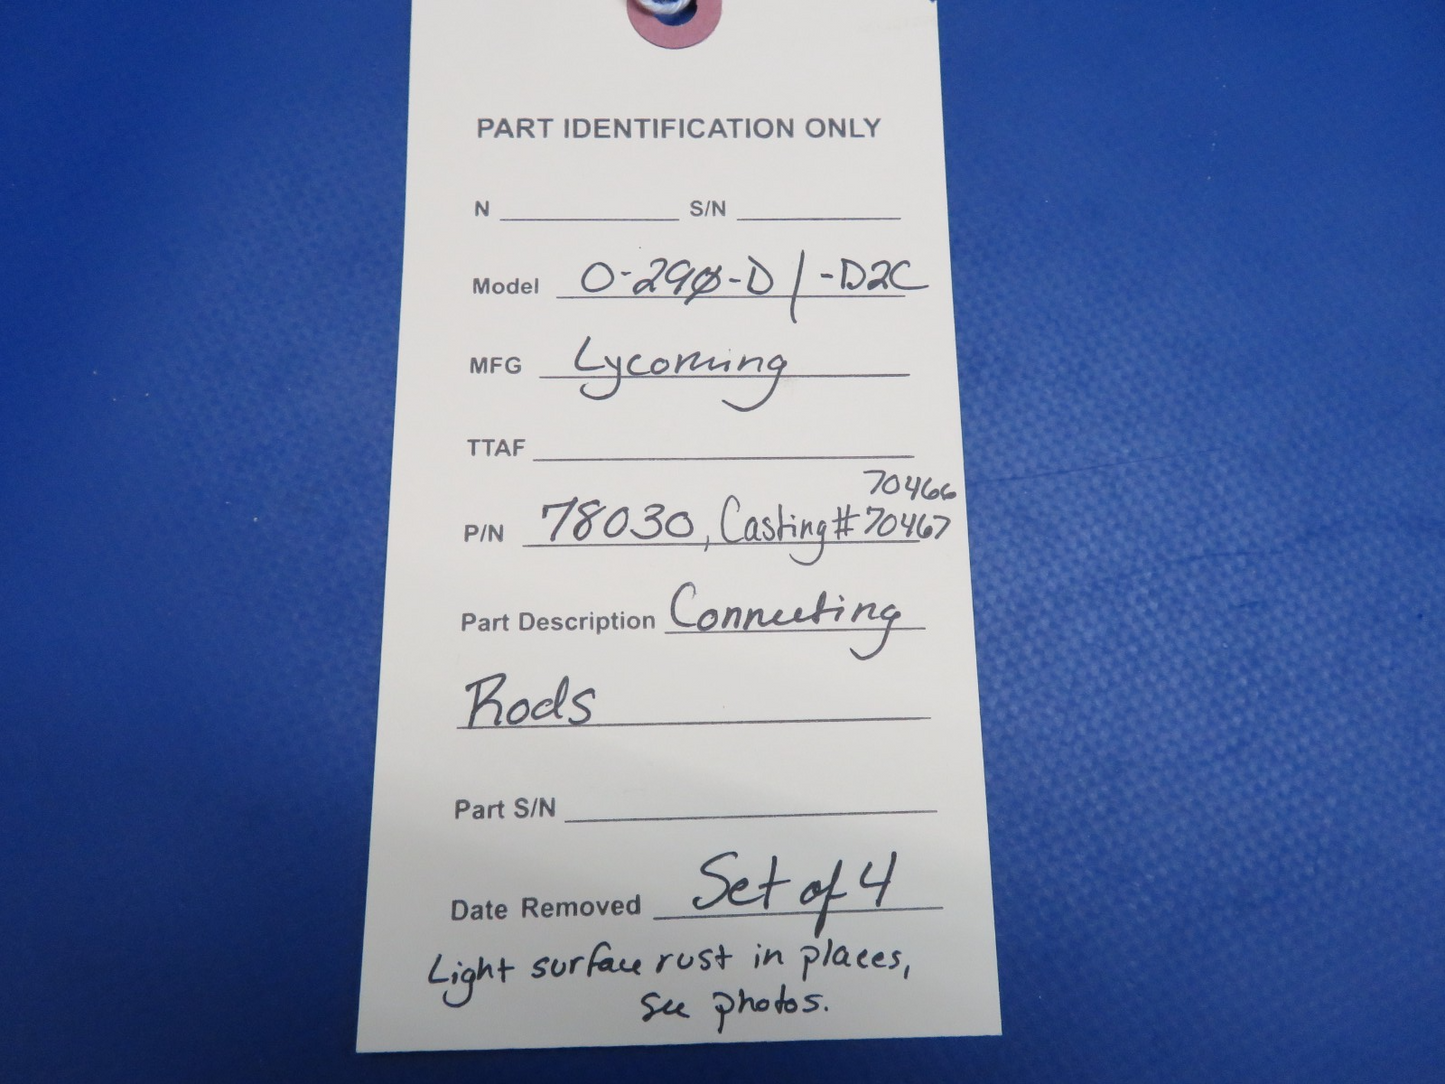 PART IDENTIFICATION ONLY
N S/N
Model O-290-D / -D2C
MFG Lycoming
TTAF
70466
P/N 78030, Casting # 70467
Part Description Connecting
Rods
Part S/N
Date Removed Set of 4
Light surface rust in places,
see photos.